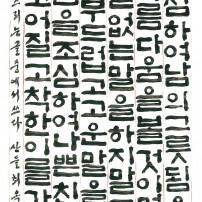 하여남의그릇됨을
다움을볼것이
없는말을하지말
부드럽고고운말을
를조심하여나쁜친
고어질고착한이를
는글중에서쓰다 산들최